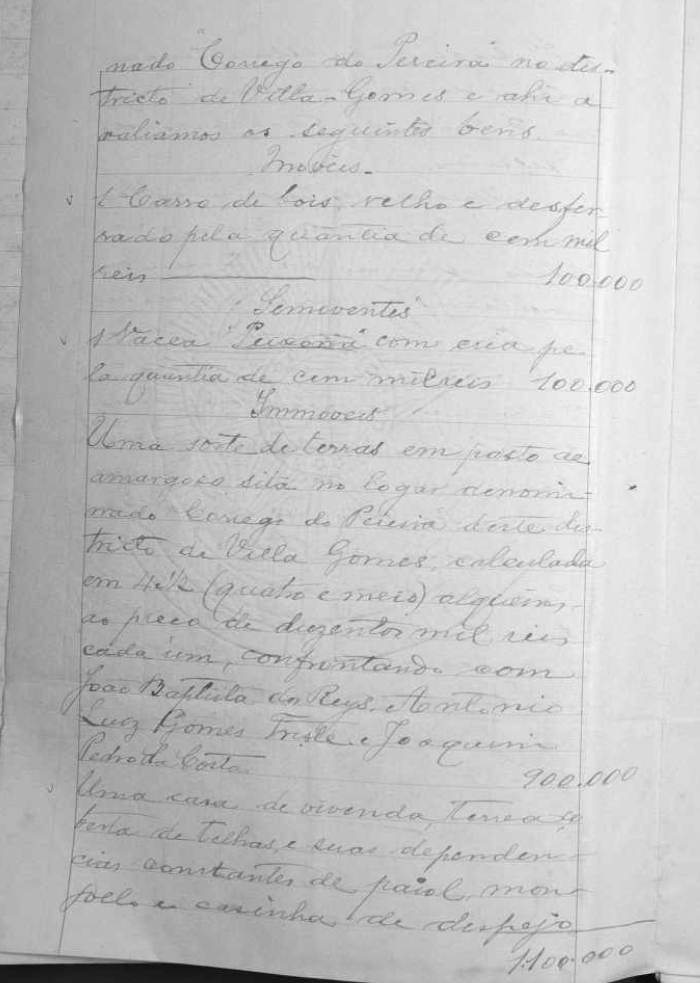 nado "Corrego do Pereira" no dis-
tricto de Villa-Gomes e ahi a
valiamos os seguintes bens.
Moveis-
1 Carro de bois, velho e desfer
rado pela quantia de cem mil
reis 100.000
"Semoventes"
1 Vacca com cria pe-
la quantia de cem mil reis 100.000
Immoveis
Uma sorte de terras em pasto de
amargoso sita no logar denomi-
nado Corrego do Pereira deste dis-
tricto de Villa Gomes, calculada
em 4 1/2 (quatro e meio) alqueires
ao preço de duzentos mil reis
cada um, confrontando com
João Baptista dos Reys, Antonio
Luiz Gomes Triste e Joaquim
Pedro da Costa 900.000
Uma casa de vivenda, terrea co
berta de telhas, e suas dependen-
cias constantes de paiol, mon-
jollo e casinha de despejo
1:100.000